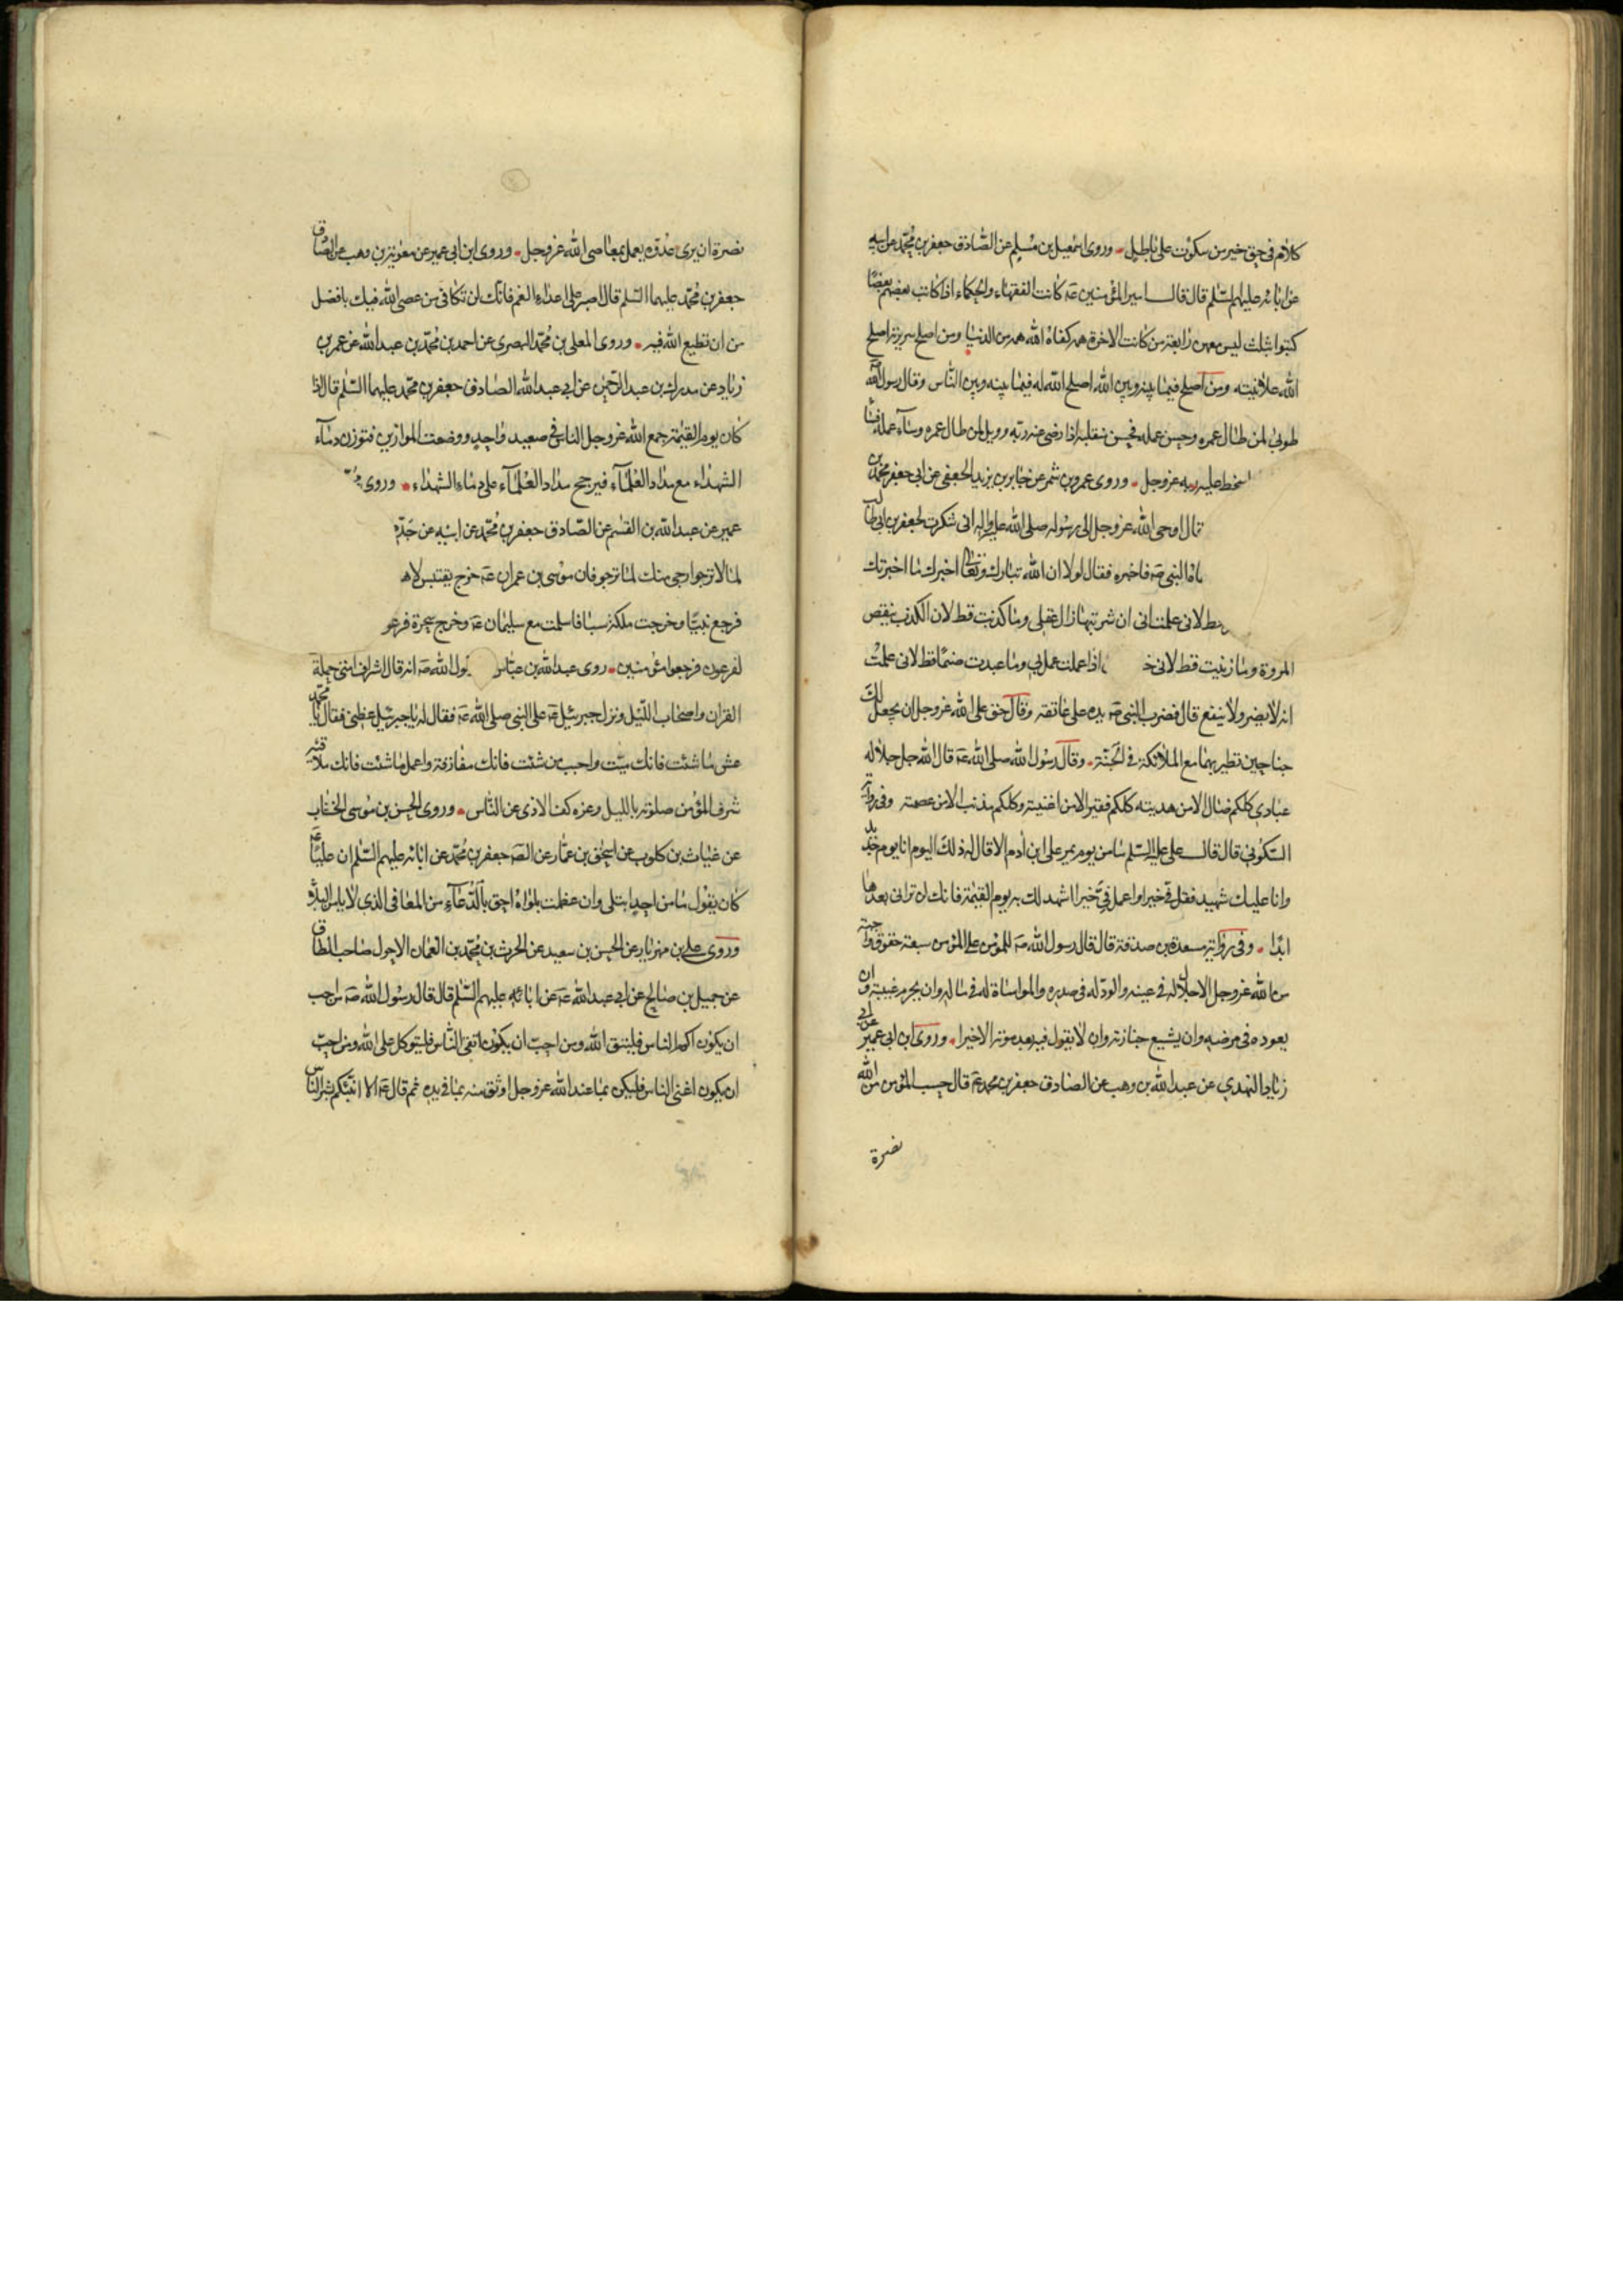 كلام فى حق خير من سكوت على باطل وروى اسمعيل بن مسلم عن الصادق جعفر بن محمد عن ابيه
عن ابائه عليهم السلم قال قال امير المؤمنين عه كانت الفقهاء والحكماء اذا كاتب بعضهم بعضا
كتبوا بثلث ليس معهن رابعة من كانت الاخرة همه كفاه الله همه من الدنيا ومن اصلح سريرته اصلح
الله علانيته ومن اصلح فيما بينه وبين الله اصلح الله له فيما بينه وبين الناس وقال رسول الله
طوبى لمن طال عمره وحسن عمله فحسن منقلبه اذا رضى عنه ربه وويل لمن طال عمره وساء عمله
سخط عليه ربه عزوجل وروى عمرو بن شمر عن جابر بن يزيد الجعفى عن ابى جعفر محمد بن
قال اوحى الله عزوجل الى رسوله صلى الله عليه واله انى شكرت لجعفر بن ابى طالب
النبى صه فاخبره فقال لولا ان الله تبارك وتعالى اخبرك ما اخبرتك
قط لانى علمت انى ان شربتها زال عقلى وما كذبت قط لان الكذب ينقص
المروة وما زنيت قط لانى خ اذا عملت عمل بى وما عبدت صنما قط لانى علمت
انه لا يضر ولا ينفع قال فضرب النبى صه يده على عاتقه وقال حق على الله عزوجل ان يجعل لك
جناحين تطير بهما مع الملائكة فى الجنة وقال رسول الله صلى الله عه قال الله جل جلاله
عبادى كلكم ضال الا من هديته كلكم فقير الا من اغنيته وكلكم مذنب الا من عصمته وفى رواية
السكونى قال قال على عليه السلم ما من يوم يمر على ابن ادم الا قال له ذلك اليوم انا يوم جديد
وانا عليك شهيد فقل فى خيرا واعمل فى خيرا اشهد لك به يوم القيمة فانك لن ترانى بعدها
ابدا وفى رواية مسعدة بن صدقة قال قال رسول الله صه للمؤمن على المؤمن سبعة حقوق واجبة
من الله عزوجل الاجلال له فى عينه والود له فى صدره والمواساة له فى ماله وان يحرم غيبته وان
يعوده فى مرضه وان يشيع جنازته وان لا يقول فيه بعد موته الا خيرا وروى ابن ابى عمير عن ابى
زياد النهدى عن عبد الله بن وهب عن الصادق جعفر بن محمد عه قال حسب المؤمن من الله
نصرة
نصرة ان يرى عدوه يعمل بمعاصى الله عزوجل وروى ابن ابى عمير عن معوية بن وهب عن الصادق
جعفر بن محمد عليهما السلم قال اصبر على اعداء النعم فانك لن تكافى من عصى الله فيك بافضل
من ان تطيع الله فيه وروى المعلى بن محمد البصرى عن احمد بن محمد بن عبد الله عن عمر بن
زياد عن مدرك بن عبد الرحمن عن ابى عبد الله الصادق جعفر بن محمد عليهما السلم قال اذا
كان يوم القيمة جمع الله عزوجل الناس فى صعيد واحد ووضعت الموازين فتوزن دماء
الشهداء مع مداد العلماء فيرجح مداد العلماء على دماء الشهداء وروى
عمير عن عبد الله بن القسم عن الصادق جعفر بن محمد عن ابيه عن جده
لما لا ترجوا رجى منك لما ترجو فان موسى بن عمران عه خرج يقتبس لاه
فرجع نبيا وخرجت ملكة سبا فاسلمت مع سليمان عه وخرج سحرة فرعو
لفرعون فرجعوا مؤمنين روى عبد الله بن عباس ول الله صه انه قال اشراف امتى حملة
القران واصحاب الليل ونزل جبرئيل عه على النبى صلى الله عه فقال له يا جبرئيل عظنى فقال يا محمد
عش ما شئت فانك ميت واحبب من شئت فانك مفارقه واعمل ما شئت فانك ملاقيه
شرف المؤمن صلوته بالليل وعزه كف الاذى عن الناس وروى الحسن بن موسى الخشاب
عن غياث بن كلوب عن اسحق بن عمار عن الصه جعفر بن محمد عن ابائه عليهم السلم ان عليا عه
كان يقول ما من احد ابتلى وان عظمت بلواه احق بالدعاء من المعافى الذى لا يامن البلاء
وروى على بن مهزيار عن الحسن بن سعيد عن الحرث بن محمد بن النعمان الاحول صاحب الطاق
عن جميل بن صالح عن ابى عبد الله عه عن ابائه عليهم السلم قال قال رسول الله صه من احب
ان يكون اكرم الناس فليتق الله ومن احب ان يكون اتقى الناس فليتوكل على الله ومن احب
ان يكون اغنى الناس فليكن بما عند الله عزوجل اوثق منه بما فى يده ثم قال عه الا انبئكم بشر الناس